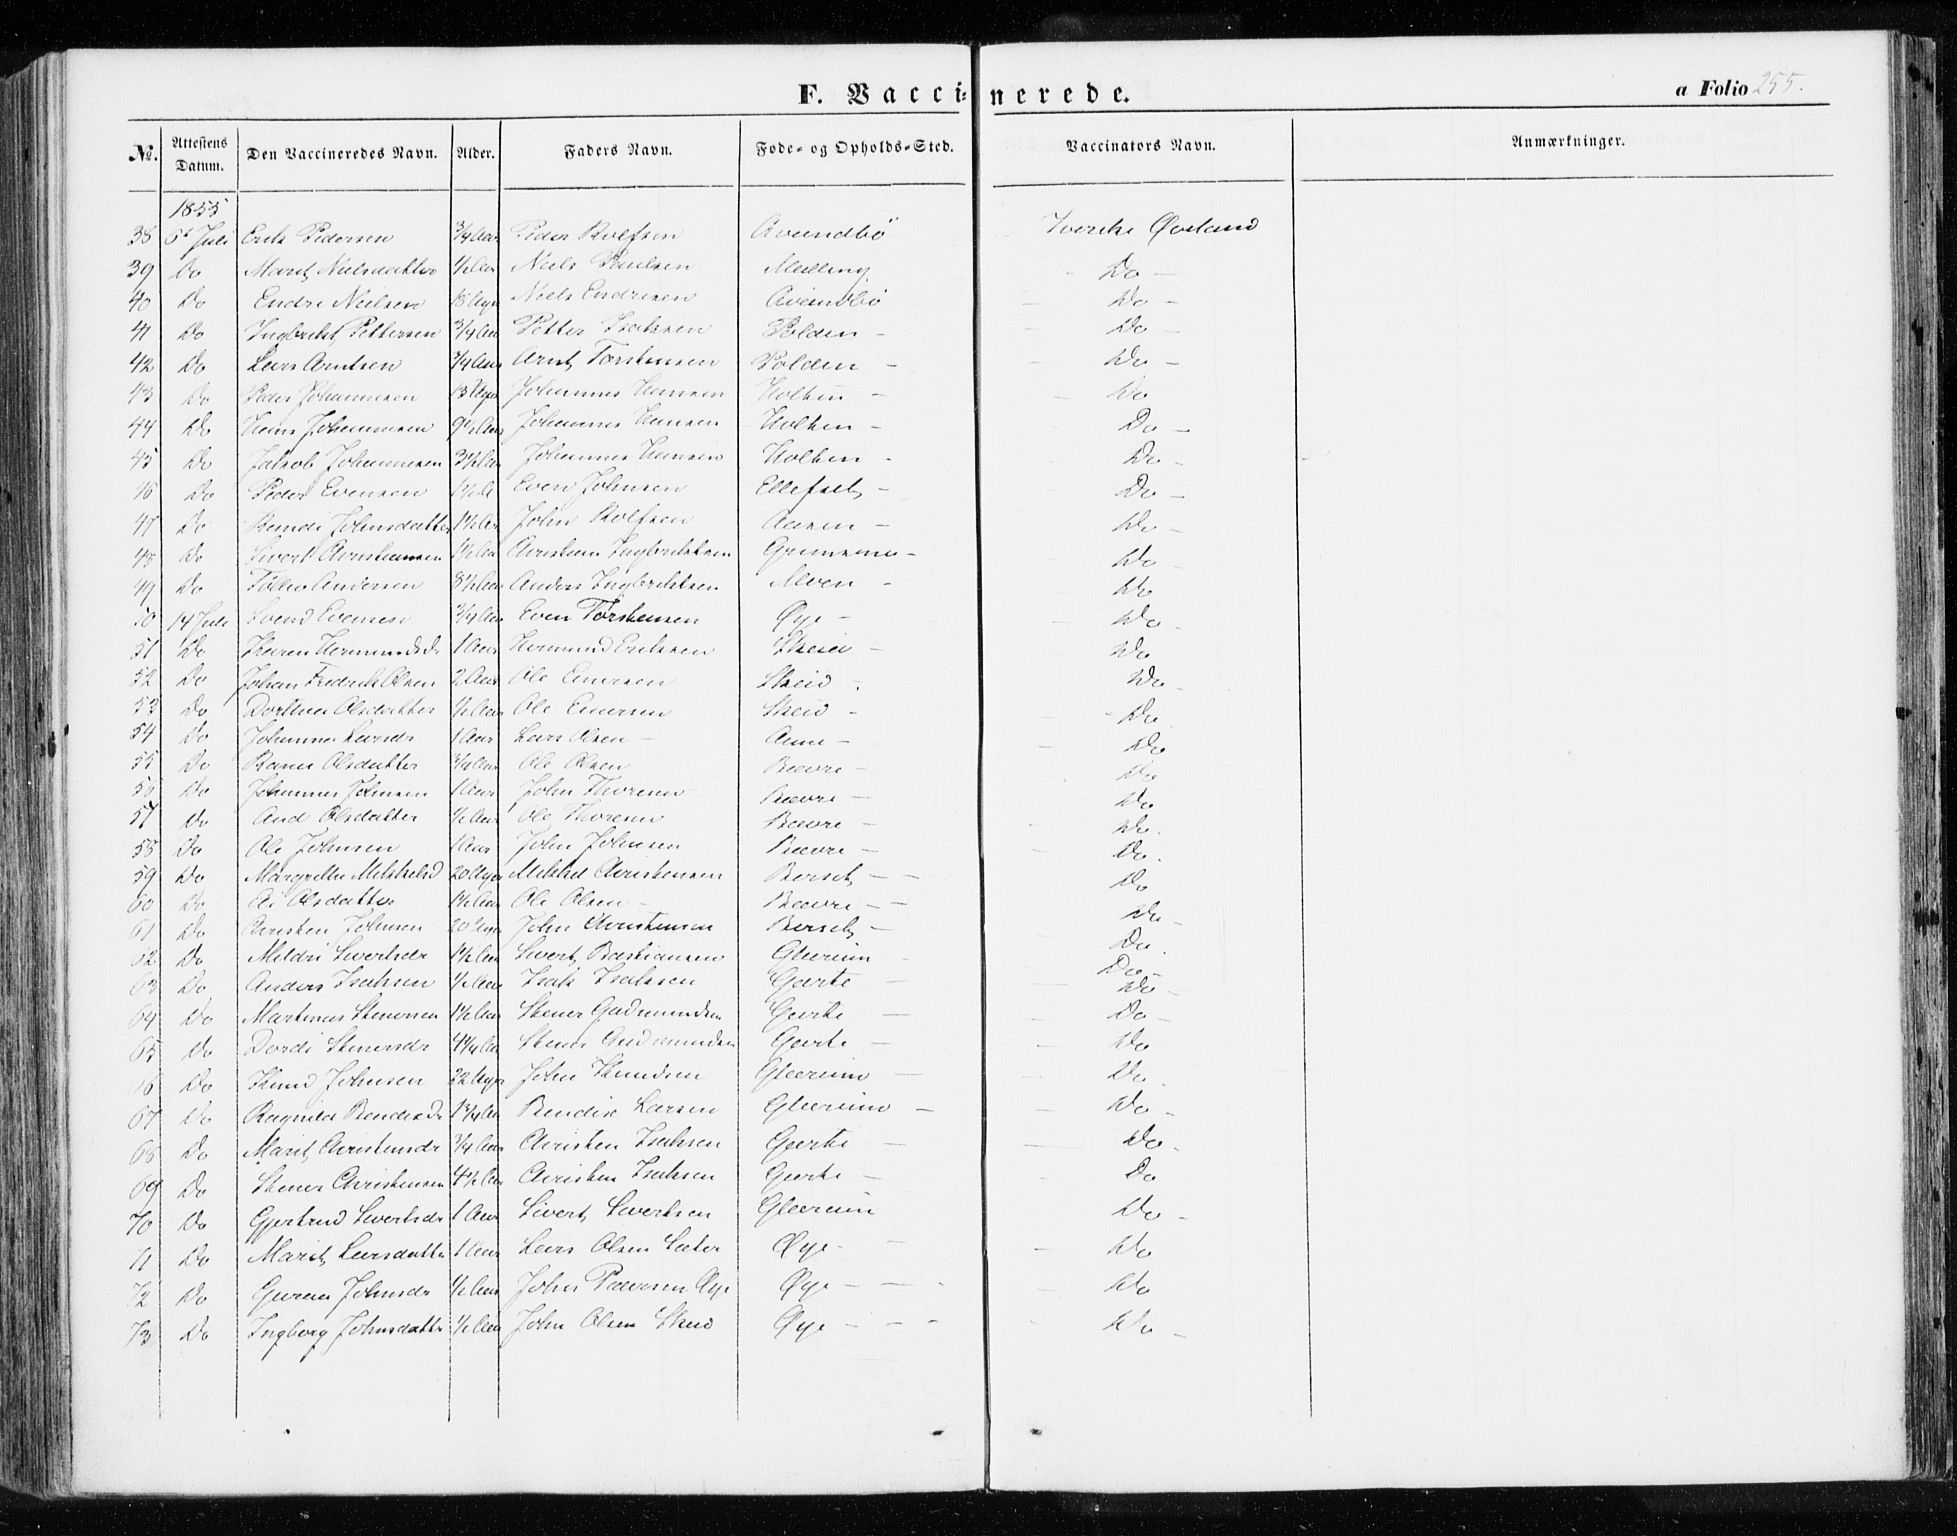 F. Vaccinerede.
a Folio 255.
№. Attestens Datum. Den Vaccineredes Navn. Alder. Faders Navn. Føde- og Opholds-Sted. Vaccinators Navn. Anmærkninger.
1855
38 6t Juli Erik Pedersen 3/4 Aar Peder Rolfsen Avundbö Øverland
39 Do Marit Nielsdatter 1/2 Aar Niels Paulsen Melling Do
40 Do Endre Nielsen 18 Niels Endresen Avundbö Do
41 Do Ingbrikt Pettersen 3/4 Aar Petter Isaksen Polden Do
42 Do Lars Arntsen 3/4 Aar Arnt Torstensen Polden Do
43 Do Peder Johannesen 13 Johannes Hansen Holten Do
44 Do Hans Johannesen 9 1/2 Aar Johannes Hansen Holten Do
45 Do Jakob Johannesen 3 1/2 Aar Johannes Hansen Holten Do
46 Do Peder Evensen 1 1/2 A Even Johnsen Ellefset Do
47 Do Johnsdatter 1 1/2 Aar John Rolfsen Aasen Do
48 Do Sivert Christensen 1 1/2 Aar Christen Ingbriktsen Do
49 Do Andersen 8 1/2 Aar Anders Ingbriktsen Moen Do
50 14 Juli Svend Evensen 3/4 Aar Even Torstensen Øye Do
51 Do Karen 1 Aar Hermund Eriksen Skei Do
52 Do Johan Fredrik Olsen 2 Aar Ole Skeid Do
53 Do Dorthea Olsdatter 1/2 Aar Ole Skeid Do
54 Do Johanna Larsdr 1 Aar Lars Olsen Aune Do
55 Do Olsdatter 3/4 Aar Ole Olsen Bævre Do
56 Do Johannes Johnsen 1 Aar John Thoresen Bævre Do
57 Do Olsdatter 1/2 Aar Ole Thoresen Bævre Do
58 Do Ole Johnsen 1 Aar John Johnsen Bævre Do
59 Do Margrethe Mikkelsd 20 Mikkel Christensen Børset Do
60 Do Olsdatter 1 1/2 Aar Ole Olsen Bævre Do
61 Do Christen Johnsen 20 John Christensen Børset Do
62 Do Mildri Sivertsdr 1 1/2 Aar Sivert Bastiansen Glærum Do
63 Do Anders Isaksen 1/2 Aar Isak Isaksen Gjerte Do
Do
64 Do Martinus Stenersen 1 1/2 Aar Stener Gudmundsen Gjerte Do
65 Do Dordi Stenersdr 4 1/4 Aar Stener Gudmundsen Gjerte Do
66 Do Knud Johnsen 22 John Knudsen Glærum Do
67 Do Ragnild 1 3/4 Aar Bendix Larsen Glærum Do
68 Do Marit Christensdr 3/4 Aar Christen Isaksen Gjerte Do
69 Do Stener Christensen 4 1/2 Aar Christen Isaksen Gjerte Do
70 Do Gjertrud Sivertsdr 1 Aar Sivert Sivertsen Glærum Do
71 Do Marit Larsdatter 1 Aar Lars Olsen Sæter Øye Do
72 Do Guren Johnsdr 1/2 Aar John Pedersen Øye Øye Do
73 Do Ingborg Johnsdatter 1/2 Aar John Olsen Skeid Øye Do